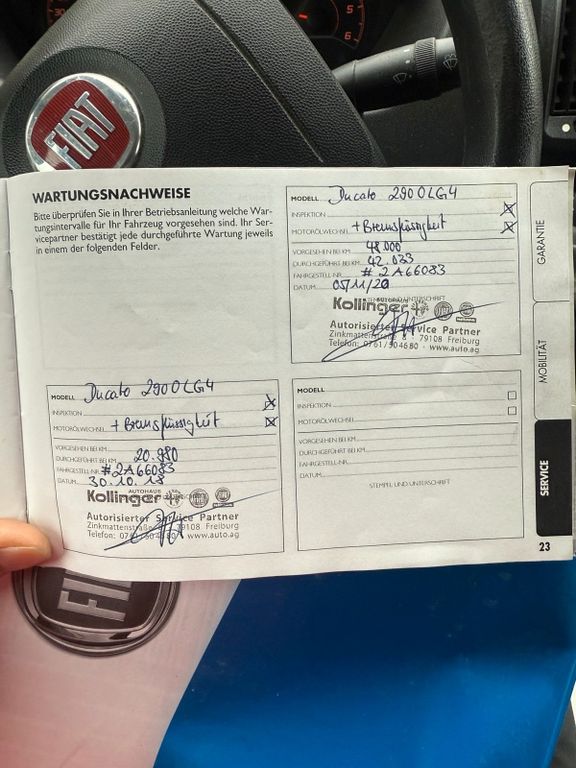 5
6
FIAT
WARTUNGSNACHWEISE
Bitte überprüfen Sie in Ihrer Betriebsanleitung welche War-
tungsintervalle für Ihr Fahrzeug vorgesehen sind. Ihr Ser-
vicepartner bestätigt jede durchgeführte Wartung jeweils
in einem der folgenden Felder.
MODELL Ducato 290OLG4
INSPEKTION
MOTORÖLWECHSEL + Bremsflüssigkeit
VORGESEHEN BEI KM 48.000
DURCHGEFÜHRT BEI KM 42.033
FAHRGESTELL-NR. # 2A66083
DATUM 05/11/20
Kollinger
Autorisierter Service Partner
Zinkmattenstraße 8 79108 Freiburg
Telefon: 0761/504680 · www.auto.ag
MODELL Ducato 290OLG4
INSPEKTION
MOTORÖLWECHSEL + Bremsflüssigkeit
VORGESEHEN BEI KM
DURCHGEFÜHRT BEI KM 20.980
FAHRGESTELL-NR. #2A66083
DATUM 30.10.18
AUTOHAUS
Kollinger
Autorisierter Service Partner
Zinkmattenstraße 79108 Freiburg
Telefon: 0761/504680 www.auto.ag
MODELL
INSPEKTION
MOTORÖLWECHSEL
VORGESEHEN BEI KM
DURCHGEFÜHRT BEI KM
FAHRGESTELL-NR.
DATUM
STEMPEL UND UNTERSCHRIFT
GARANTIE
MOBILITÄT
SERVICE
23
FIAT